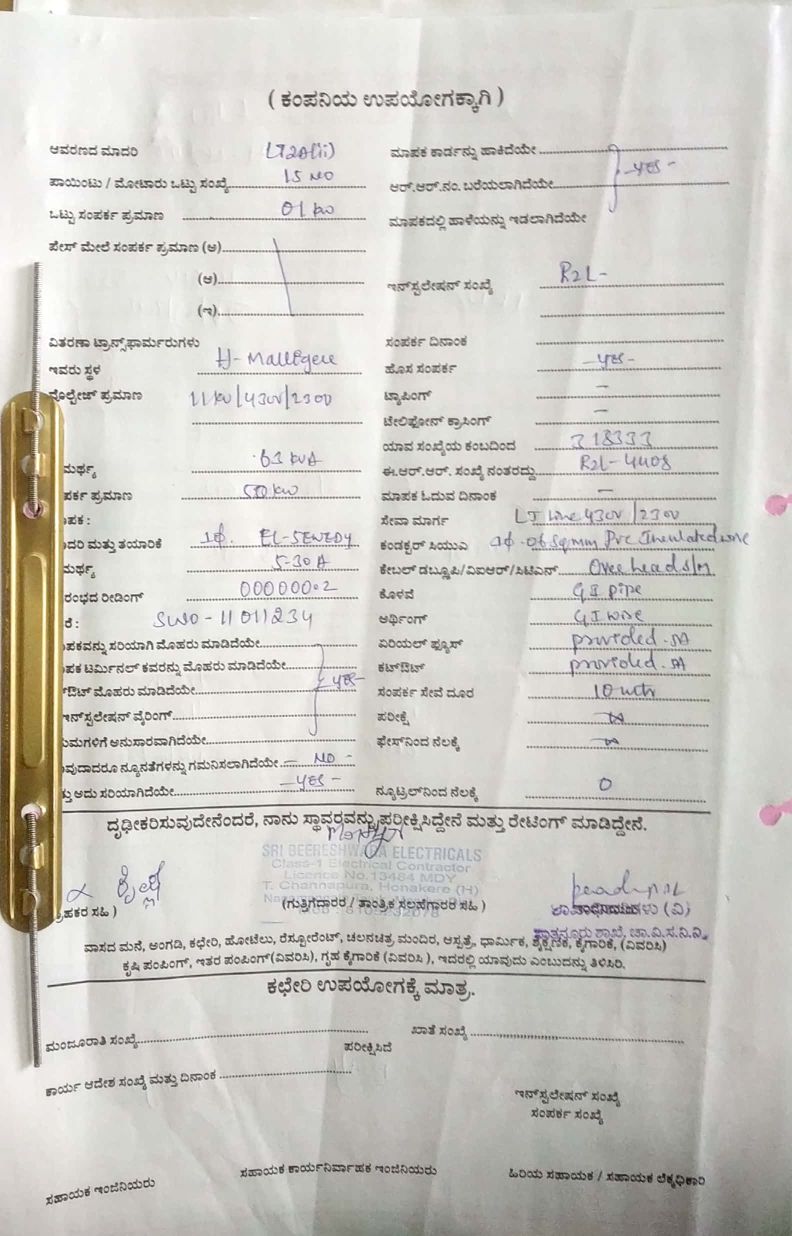 ( ಕಂಪನಿಯ ಉಪಯೋಗಕ್ಕಾಗಿ )
ಆವರಣದ ಮಾದರಿ LT2A(ii) ಮಾಪಕ ಕಾರ್ಡನ್ನು ಹಾಕಿದೆಯೇ
ಪಾಯಿಂಟು / ಮೋಟಾರು ಒಟ್ಟು ಸಂಖ್ಯೆ 15 NO ಆರ್.ಆರ್.ನಂ. ಬರೆಯಲಾಗಿದೆಯೇ -YES-
ಒಟ್ಟು ಸಂಪರ್ಕ ಪ್ರಮಾಣ 01 KW ಮಾಪಕದಲ್ಲಿ ಹಾಳೆಯನ್ನು ಇಡಲಾಗಿದೆಯೇ
ಪೇಸ್ ಮೇಲೆ ಸಂಪರ್ಕ ಪ್ರಮಾಣ (ಅ)
(ಆ) ಇನ್‌ಸ್ಟಲೇಷನ್ ಸಂಖ್ಯೆ R2L-
(ಇ)
ವಿತರಣಾ ಟ್ರಾನ್ಸ್‌ಫಾರ್ಮರುಗಳು ಸಂಪರ್ಕ ದಿನಾಂಕ
ಇವರು ಸ್ಥಳ H-Mallegere ಹೊಸ ಸಂಪರ್ಕ -YES-
ವೊಲ್ಟೇಜ್ ಪ್ರಮಾಣ 11KV/430V/230V ಟ್ಯಾಪಿಂಗ್ -
ಟೇಲಿಫೋನ್ ಕ್ರಾಸಿಂಗ್ -
ಯಾವ ಸಂಖ್ಯೆಯ ಕಂಬದಿಂದ 318333
ಮರ್ಥ್ಯ 63 KVA ಈ.ಆರ್.ಆರ್. ಸಂಖ್ಯೆ ನಂತರದ್ದು R2L-4408
ಪರ್ಕ ಪ್ರಮಾಣ 50 KW ಮಾಪಕ ಓದುವ ದಿನಾಂಕ -
ಾಪಕ : ಸೇವಾ ಮಾರ್ಗ LT line 430V/230V
ಾದರಿ ಮತ್ತು ತಯಾರಿಕೆ 1ф. ಕಂಡಕ್ಟರ್ ಸಿಯುಎ 1ф-06 Sqmm PVC Insulated wire
ಮರ್ಥ್ಯ 5-30A ಕೇಬಲ್ ಡಬ್ಲ್ಯೂಪಿ/ವಿಐಆರ್/ಸಿಟಿಎನ್ Over head s/m
ರಂಭದ ರೀಡಿಂಗ್ 000000.2 ಕೊಳವೆ GI pipe
ರೆ : SWO-11011234 ಅರ್ಥಿಂಗ್ GI wire
ಾಪಕವನ್ನು ಸರಿಯಾಗಿ ಮೊಹರು ಮಾಡಿದೆಯೇ ಏರಿಯಲ್ ಫ್ಯೂಸ್ provided. 5A
ಾಪಕ ಟರ್ಮಿನಲ್ ಕವರನ್ನು ಮೊಹರು ಮಾಡಿದೆಯೇ ಕಟ್‌ಔಟ್ provided. 5A
್‌ಔಟ್ ಮೊಹರು ಮಾಡಿದೆಯೇ -YES- ಸಂಪರ್ಕ ಸೇವೆ ದೂರ 10 mtr
ಇನ್‌ಸ್ಟಲೇಷನ್ ವೈರಿಂಗ್ ಪರೀಕ್ಷೆ
ಯಮಗಳಿಗೆ ಅನುಸಾರವಾಗಿದೆಯೇ ಫೇಸ್‌ನಿಂದ ನೆಲಕ್ಕೆ
ಾವುದಾದರೂ ನ್ಯೂನತೆಗಳನ್ನು ಗಮನಿಸಲಾಗಿದೆಯೇ - NO -
ತ್ತು ಅದು ಸರಿಯಾಗಿದೆಯೇ -YES- ನ್ಯೂಟ್ರಲ್‌ನಿಂದ ನೆಲಕ್ಕೆ 0
ದೃಢೀಕರಿಸುವುದೇನೆಂದರೆ, ನಾನು ಸ್ಥಾವರವನ್ನು ಪರೀಕ್ಷಿಸಿದ್ದೇನೆ ಮತ್ತು ರೇಟಿಂಗ್ ಮಾಡಿದ್ದೇನೆ.
SRI BEERESHWARA ELECTRICALS
Class-1 Electrical Contractor
Licence No.13484 MDY
T. Channapura, Honakere (H)
್ರಾಹಕರ ಸಹಿ ) (ಗುತ್ತಿಗೆದಾರರ / ತಾಂತ್ರಿಕ ಸಲಹೆಗಾರರ ಸಹಿ )
ವಾಸದ ಮನೆ, ಅಂಗಡಿ, ಕಛೇರಿ, ಹೋಟೆಲು, ರೆಸ್ಟೋರೆಂಟ್, ಚಲನಚಿತ್ರ ಮಂದಿರ, ಆಸ್ಪತ್ರೆ, ಧಾರ್ಮಿಕ, ಶೈಕ್ಷಣಿಕ, ಕೈಗಾರಿಕೆ, (ವಿವರಿಸಿ)
ಕೃಷಿ ಪಂಪಿಂಗ್, ಇತರ ಪಂಪಿಂಗ್(ವಿವರಿಸಿ), ಗೃಹ ಕೈಗಾರಿಕೆ (ವಿವರಿಸಿ ), ಇದರಲ್ಲಿ ಯಾವುದು ಎಂಬುದನ್ನು ತಿಳಿಸಿರಿ.
ಕಛೇರಿ ಉಪಯೋಗಕ್ಕೆ ಮಾತ್ರ.
ಮಂಜೂರಾತಿ ಸಂಖ್ಯೆ ಖಾತೆ ಸಂಖ್ಯೆ
ಪರೀಕ್ಷಿಸಿದೆ
ಕಾರ್ಯ ಆದೇಶ ಸಂಖ್ಯೆ ಮತ್ತು ದಿನಾಂಕ
ಇನ್‌ಸ್ಟಲೇಷನ್ ಸಂಖ್ಯೆ
ಸಂಪರ್ಕ ಸಂಖ್ಯೆ
ಸಹಾಯಕ ಇಂಜಿನಿಯರು ಸಹಾಯಕ ಕಾರ್ಯನಿರ್ವಾಹಕ ಇಂಜಿನಿಯರು ಹಿರಿಯ ಸಹಾಯಕ / ಸಹಾಯಕ ಲೆಕ್ಕಧಿಕಾರಿ